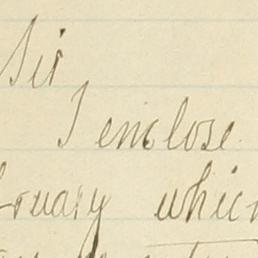 Sir
I enclose
bruary which